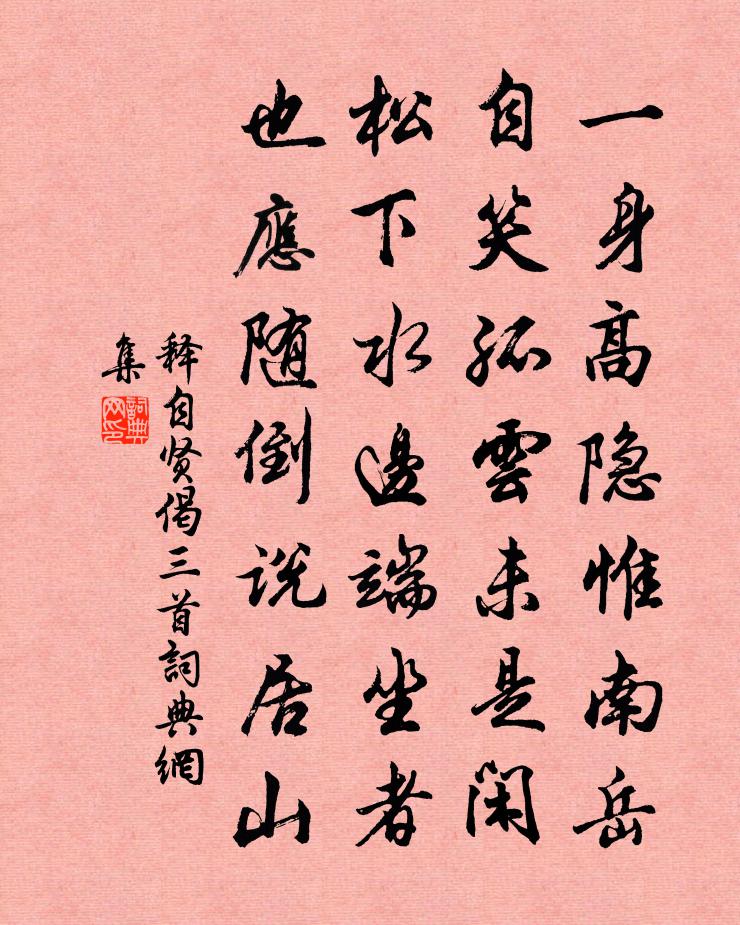 一身高隐惟南岳
自笑孤雲未是闲
松下水邊端坐者
也應随倒説居山
释自贤偈三首詞典網
集
詞典
网印